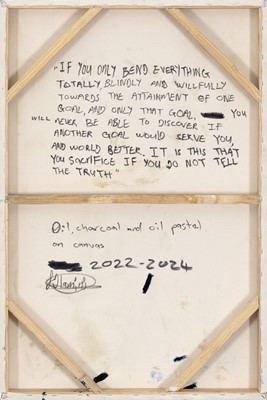 "IF YOU ONLY BEND EVERYTHING
TOTALLY, BLINDLY AND WILLFULLY
TOWARDS THE ATTAINMENT OF ONE
GOAL, AND ONLY THAT GOAL, YOU
WILL NEVER BE ABLE TO DISCOVER IF
ANOTHER GOAL WOULD SERVE YOU,
AND WORLD BETTER. IT IS THIS THAT
YOU SACRIFICE IF YOU DO NOT TELL
THE TRUTH"
Oil, charcoal and oil pastel
on canvas
2022-2024